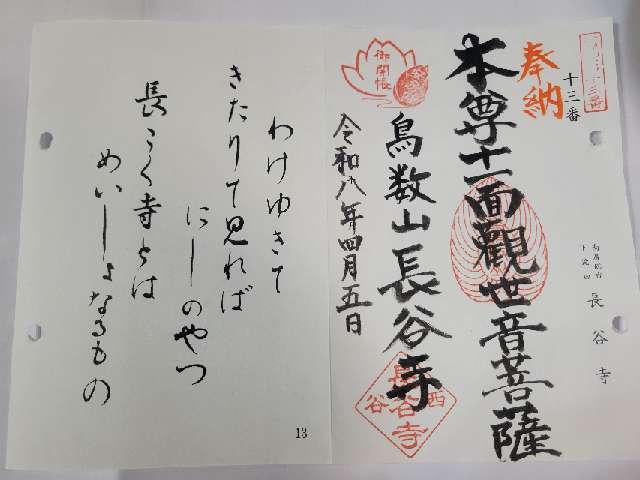 奉納
十三番
本尊十一面觀世音菩薩
長谷寺
御開帳
鳥数山長谷寺
令和八年四月五日
西谷
長谷寺
わけゆきて
きたりて見れば
にしのやつ
長こく寺とは
めいしよなるもの
13